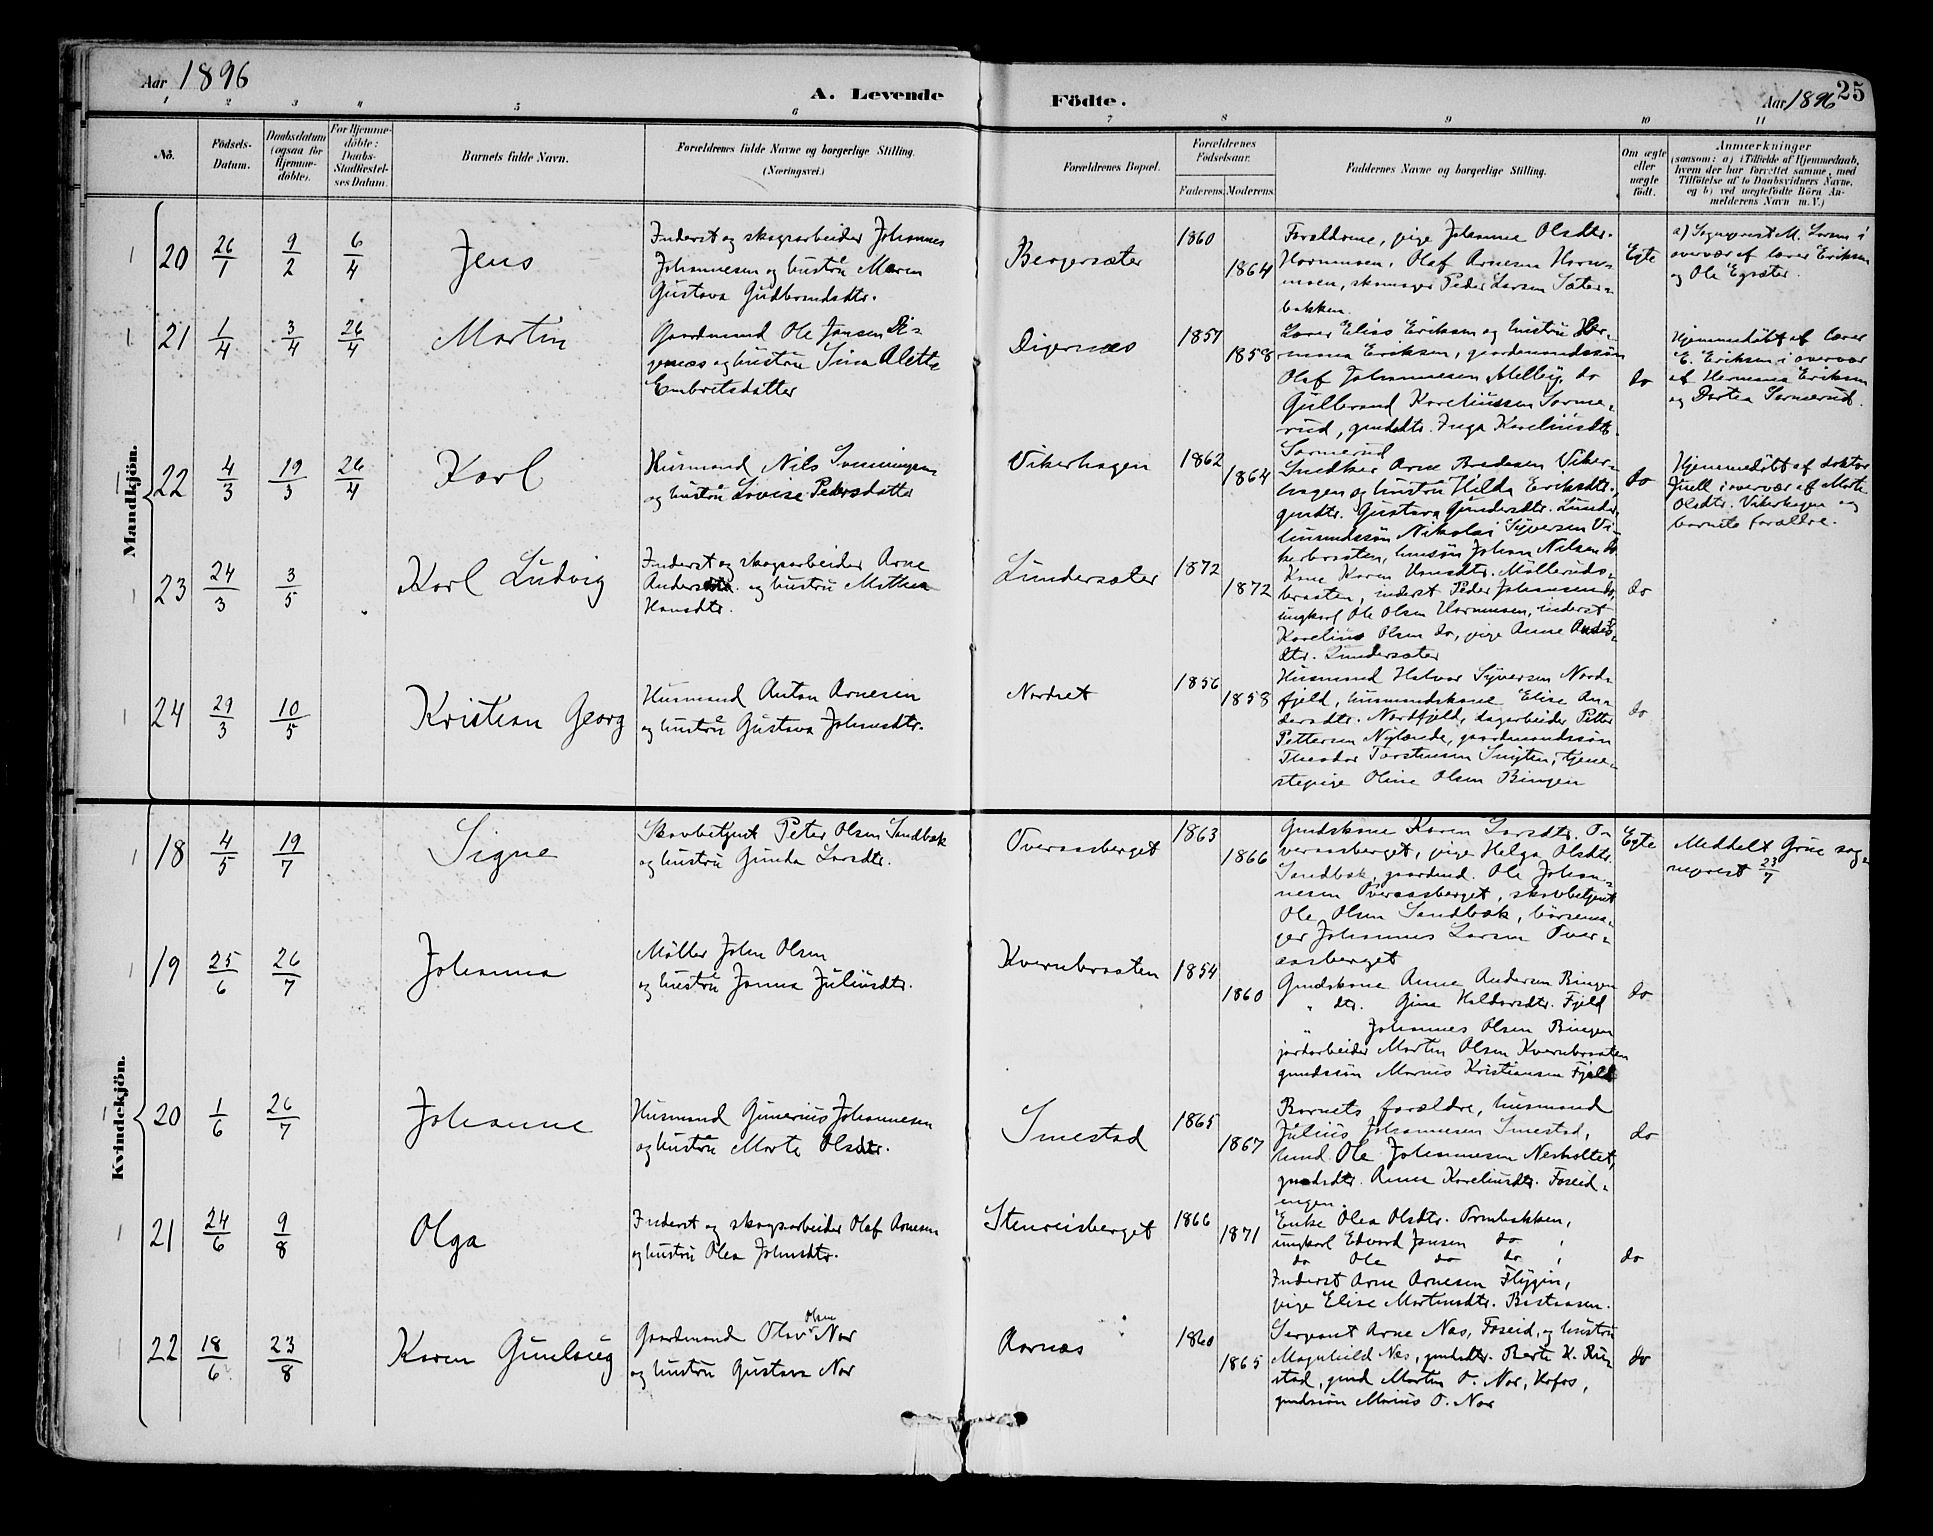 Aar 1896
A. Levende
Födte.
Aar 1896
25
1 2 3 4 5 6 7 8 9 10 11
No.
Födsels-
Datum.
Daabsdatum
(ogsaa for
Hjemme-
döbte).
For Hjemme-
döbte:
Daabs-
Stadfæstel-
ses Datum.
Barnets fulde Navn.
Forældrenes fulde Navne og borgerlige Stilling.
(Næringsvei.)
Forældrenes Bopæl.
Forældrenes
Födselsaar.
Faderens. Moderens.
Faddernes Navne og borgerlige Stilling.
Om ægte
eller
uægte
födt.
Anmærkninger
(saasom: a) i Tilfælde af Hjemmedaab,
hvem der har forrettet samme, med
Tilföielse af to Daabsvidners Navne,
og b) ved uægtefödte Börn An-
melderens Navn m. V.)
Mandkjön.
20 26/1 9/2 6/4
Jens
Inderst og skogsarbeider Johannes
Johannesen og hustru Maren
Gustava Gudbrandsdtr.
Bergersæter
1860
1864
Forældrene, pige Johanne Olsdtr.
Hornmoen, Olaf Arnesen Horn-
moen, skomager Peder Larsen Sæter-
bakken
Egte
a) Sogneprest M. Sorem i
overvær af lærer Eriksen
og Ole Egsæter.
21 1/4 3/4 26/4
Martin
Gaardmand Ole Jansen Di-
gernæs og hustru Sina Alette
Embretsdatter
Digernæs
1857
1858
Lærer Elias Eriksen og hustru Her-
mana Eriksen, gaardmandssøn
Olaf Johannesen Melby, do
Gulbrand Kareliussen Sorme-
rud, gmdsdtr. Inga Kareliusdtr.
Sormerud
do
Hjemmedöbt af lærer
E. Eriksen i overvær
af Hermana Eriksen
og Dortea Sormerud.
22 4/3 19/3 26/4
Karl
Husmand Nils Svenningsen
og hustru Lovise Pedersdatter
Vikerhagen
1862
1864
Snedker Arne Andersen Viker-
hagen og hustru Hilda Eriksdtr.,
gmdtr. Gustava Gundersdtr. Lunder,
husmandssøn Nikolai Syversen Vi-
kerbraaten, hmsøn Johan Nilsen do
do
Hjemmedöbt af doktor
Juell i overvær af Marte
Olsdtr. Vikerhagen og
barnets forældre.
23 24/3 3/5
Karl Ludvig
Inderst og skogsarbeider Arne
Andersen og hustru Mathea
Hansdtr.
Lundersæter
1872
1872
Kone Karen Hansdtr. Mölleruds-
braaten, inderst Peder Johansen do,
ungkarl Ole Olsen Harmosen, inderst
Karelius Olsen do, pige Anne Anders-
dtr. Lundersæter
do
24 29/3 10/5
Kristian Georg
Husmand Anton Arnesen
og hustru Gustava Johnsdtr.
Nordset
1856
1858
Husmand Halvor Syversen Nord-
fjeld, husmandskone Elise An-
dersdtr. Nordfjeld, dagarbeider Petter
Pettersen Nylænde, gaardmandssøn
Theodor Torstensen Snigten, tjene-
stepige Oline Olsen Bingen
do
Kvindekjön.
18 4/5 19/7
Signe
Skovbetjent Peter Olsen Sandbæk
og hustru Gunda Larsdtr.
Overaasberget
1863
1866
Gmdskone Karen Larsdtr. O-
veraasberget, pige Helga Olsdtr.
Sandbæk, gaardmd. Ole Johan-
nesen Overaasberget, skovbetjent
Ole Olsen Sandbæk, börsema-
ger Johannes Larsen Over-
aasberget
Egte
Meddelt Grue sog-
neprest 23/7
19 25/6 26/7
Johanna
Møller John Olsen
og hustru Janna Juliusdtr.
Kvernbraaten
1854
1860
Gmdskone Anne Andersen Bingen
" dtr. Gina Haldorsdtr. Fjeld
" Johannes Olsen Bingen
jordarbeider Martin Olsen Kvernbraaten
gmdssøn Marius Kristiansen Fjeld
do
20 1/6 26/7
Johanne
Husmand Gunerius Johannesen
og hustru Marte Olsdtr.
Smestad
1865
1867
Barnets forældre, husmand
Julius Johannesen Smestad,
hmd Ole Johannesen Nesholtet,
gmdsdtr. Anna Kareliusdtr. Foseid-
engen.
do
21 24/6 9/8
Olga
Inderst og skogsarbeider Olaf Arnesen
og hustru Olea Johnsdtr.
Stenreisberget
1866
1871
Enke Olea Olsdtr. Ormbakken,
ungkarl Edvard Jansen do,
do Ole do do,
Inderst Arne Arnesen Flygin,
pige Elise Martinsdtr. Bastaasen.
do
22 18/6 23/8
Karen Gunlaug
Gaardmand Olav Olsen Nor
og hustru Gustava Nor
Aarnæs
1860
1865
Sergeant Arne Næs, Foseid, og hustru
Magnhild Næs, gmdsdtr. Berte K. Rus-
stad, gmd Martin O. Nor, Hofos,
gmdssøn Marius O. Nor
do